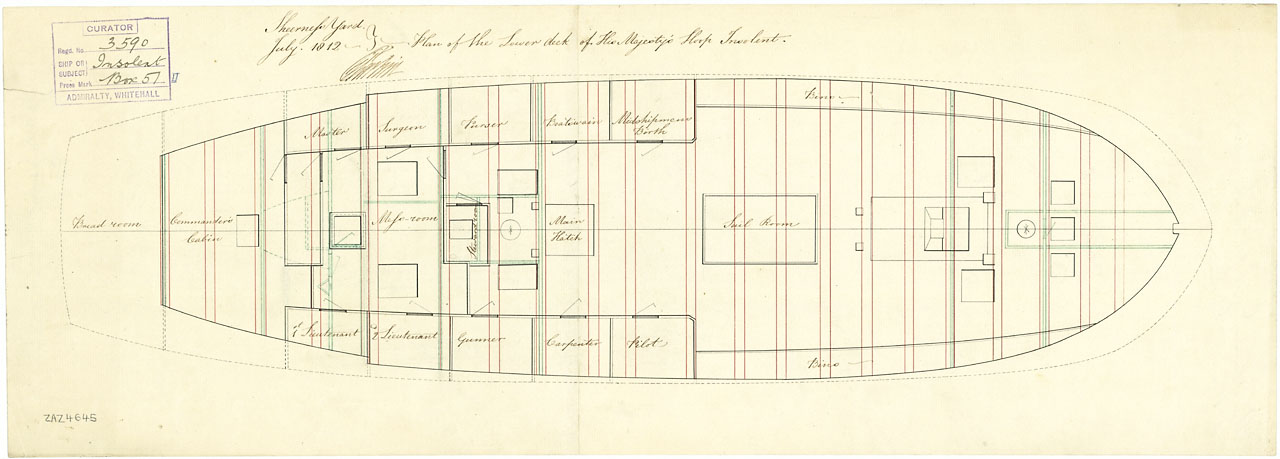 CURATOR
Regd. No. 3590
SHIP OR SUBJECT Insolent
Press Mark Box 51 II
ADMIRALTY, WHITEHALL
Sheerness Yard
July 1812
Plan of the Lower deck of His Majesty's Sloop Insolent.
Master
Surgeon
Purser
Boatswain
Midshipmens
Berth
Bins
Bread room
Commander's
Cabin
Mess-room
Main
Hatch
Sail Room
1st Lieutenant
2d Lieutenant
Gunner
Carpenter
Pilot
Bins
ZAZ4645